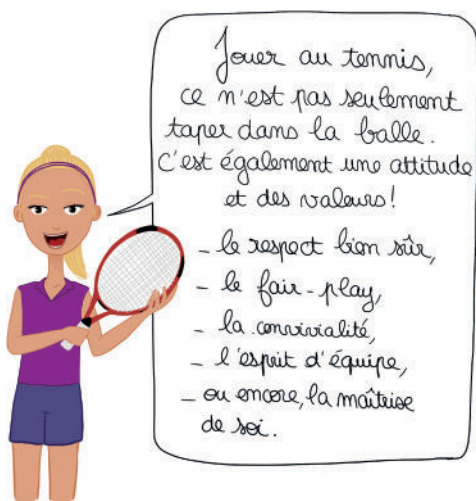 Jouer au tennis,
ce n'est pas seulement
taper dans la balle.
C'est également une attitude
et des valeurs!
- le respect bien sûr,
- le fair-play,
- la convivialité,
- l'esprit d'équipe,
- ou encore, la maîtrise
de soi.